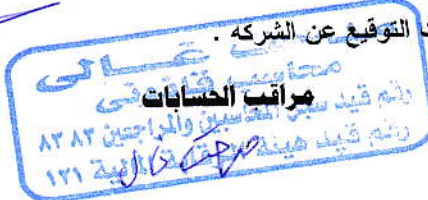 التوقيع عن الشركه .
غالى
محاسب قانونى
مراقب الحسابات
رقم قيد سجل المحاسبين والمراجعين ٨٣٨٣
رقم قيد هيئة الرقابة المالية ١٢١